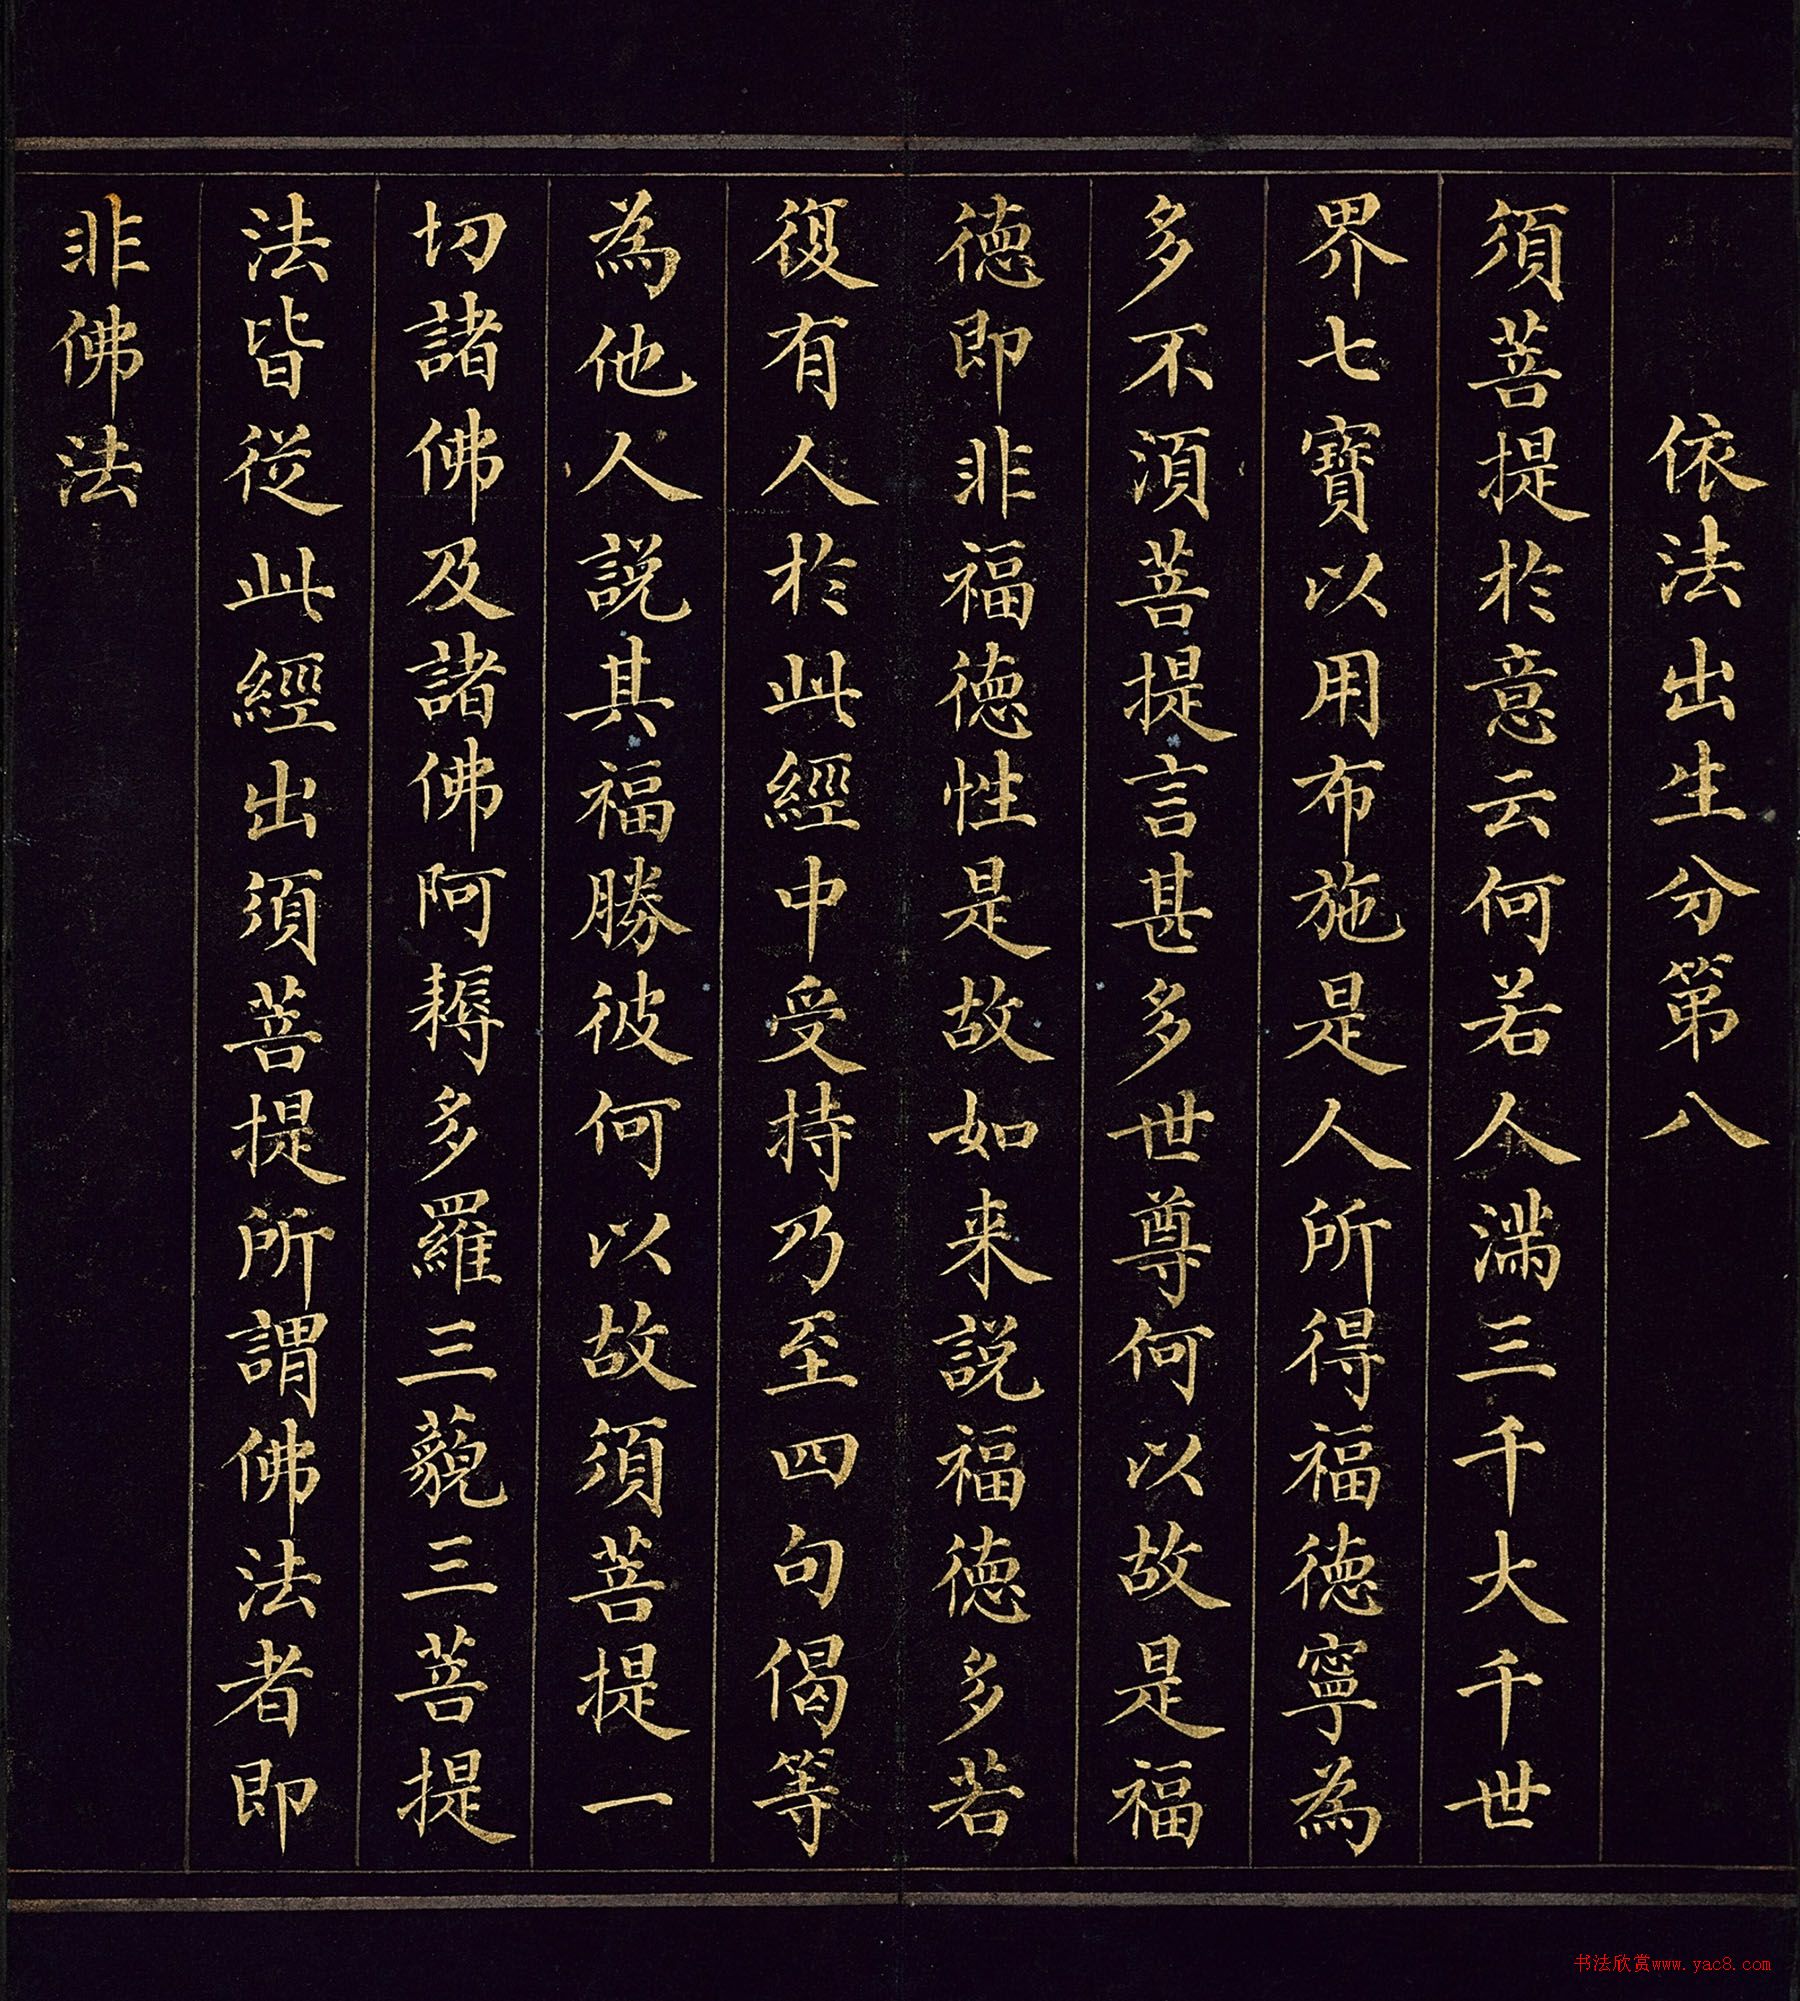 依法出生分第八
須菩提於意云何若人滿三千大千世
界七寶以用布施是人所得福德寧為
多不須菩提言甚多世尊何以故是福
德即非福德性是故如来說福德多若
復有人於此經中受持乃至四句偈等
為他人說其福勝彼何以故須菩提一
切諸佛及諸佛阿耨多羅三藐三菩提
法皆從此經出須菩提所謂佛法者即
非佛法
书法欣赏www.yac8.com